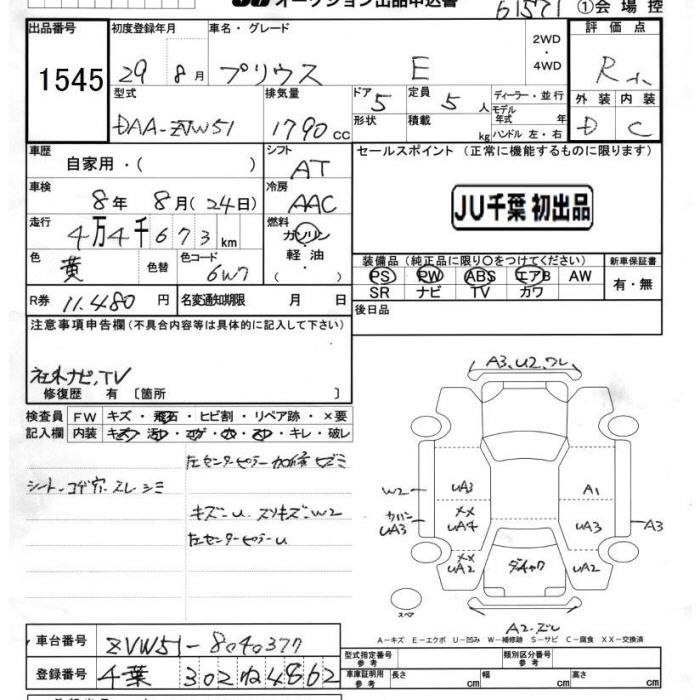 JU オークション出品申込書 61571 ①会場控
出品番号 1545
初度登録年月 29 8月
車名・グレード プリウス E
2WD ・ 4WD
評価点 R
型式 DAA-ZVW51
排気量 1790 cc
ドア 5 形状
定員 5 人 積載 kg
ディーラー・並行 モデル年式 年 ハンドル 左・右
外装 D 内装 C
車歴 自家用・( )
シフト AT
セールスポイント (正常に機能するものに限ります)
JU千葉 初出品
車検 8年 8月(24日)
冷房 AAC
走行 4万4千673km
燃料 ガソリン 軽油 ( )
色 黄 色替 色コード 6W7
装備品 (純正品に限り○をつけてください) 新車保証書
PS PW ABS エアB AW 有・無
SR ナビ TV カワ
R券 11,480 円 名変通知期限 月 日
後日品
注意事項申告欄(不具合内容等は具体的に記入して下さい)
社外ナビ,TV
修復歴 有 [箇所 ]
検査員 FW キズ・飛石・ヒビ割・リペア跡・×要
記入欄 内装 キズ・汚レ・コゲ・穴・スレ・キレ・破レ
左センターピラー加修
シート コゲ穴.スレ シミ
キズ-U スリキズ-W2
左センターピラーU
A3,U2,ワレ
W2 UA3 A1
UA3 XX UA4 UA3 A3
XX UA2 UA2
スペア
A2-ズレ
A-キズ E-エクボ U-凹み W-補修跡 S-サビ C-腐食 XX-交換済
車台番号 ZVW51-8040377
登録番号 千葉 302 ね 4862
型式指定番号 参考 類別区分番号 参考
車庫証明用 参考 長さ cm 幅 cm 高さ cm